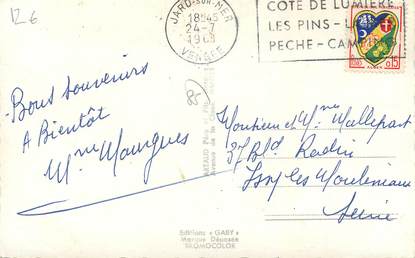 12 6
JARD-SUR-MER
18H45
24-7
1963
VENDEE
COTE DE LUMIERE
LES PINS - L
PECHE - CAMPIN
0,15
Bons souvenirs
A Bientôt
Mme Mourgues
85
Monsieur et Mme Mallepart
37 Bld Rodin
Issy les Moulineaux
Seine
Editions « GABY »
Marque Déposée
BROMOCOLOR